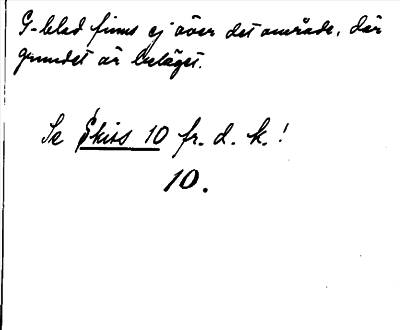 G-blad finns ej över det område, där
grundet är beläget.
Se Skiss 10 fr. d. k.!
10.